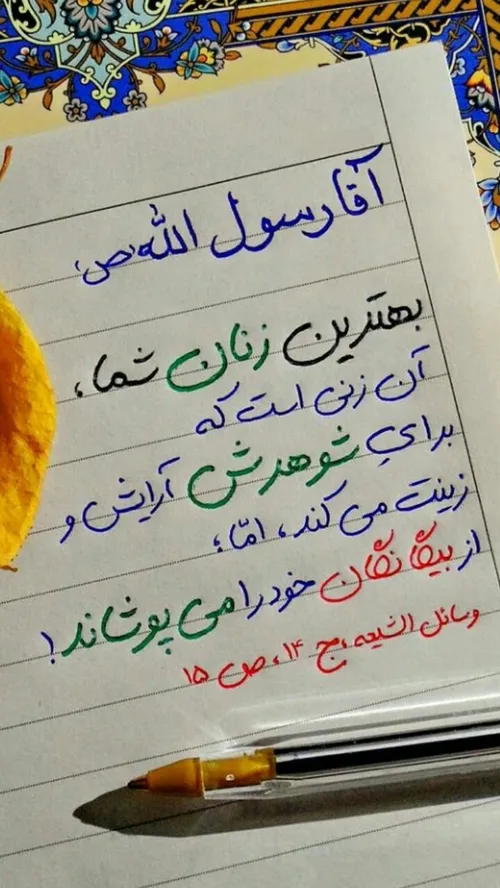 آقا رسول الله (ص)
بهترین زنان شما،
آن زنی است که
برایِ شوهرش آرایش و
زینت می کند، امّا؛
از بیگانگان خود را می پوشاند!
وسائل الشیعه، ج ۱۴، ص ۱۵